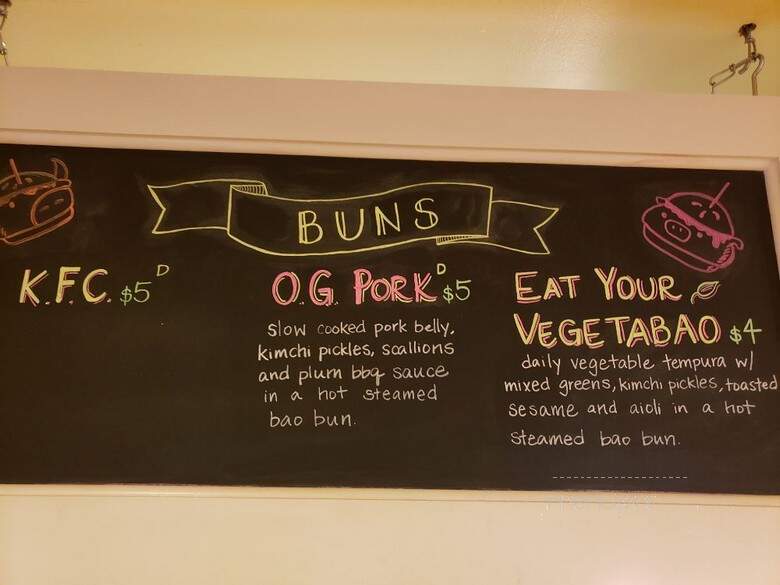 BUNS
K.F.C. $5 D
O.G. PORK D $5
slow cooked pork belly,
kimchi pickles, scallions
and plum bbq sauce
in a hot steamed
bao bun.
EAT YOUR
VEGETABAO $4
daily vegetable tempura w/
mixed greens, kimchi pickles, toasted
sesame and aioli in a hot
steamed bao bun.